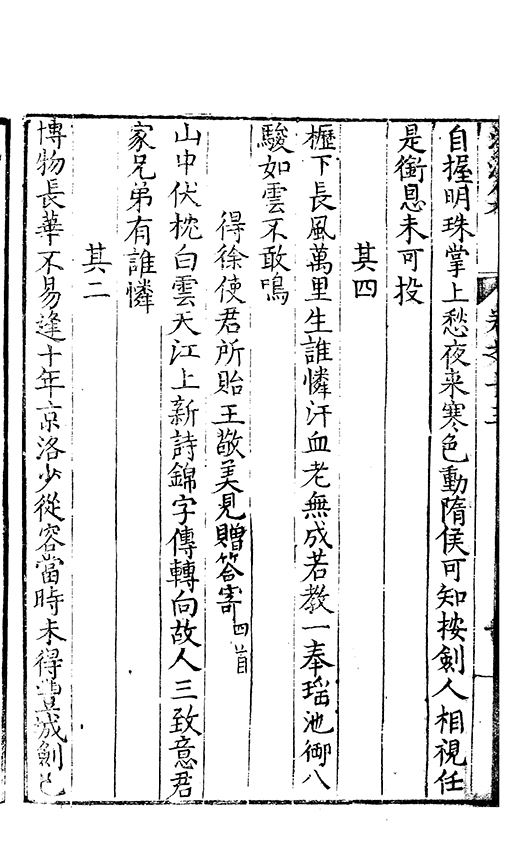 自握明珠掌上愁夜來寒色動隋侯可知按劍人相視任
是銜恩未可投
其四
櫪下長風萬里生誰憐汗血老無成若教一奉瑤池御八
駿如雲不敢鳴
得徐使君所貽王敬美見贈答寄四首
山中伏枕白雲天江上新詩錦字傳轉向故人三致意君
家兄弟有誰憐
其二
博物長華不易逢十年京洛少從容當時未得豐城劍已